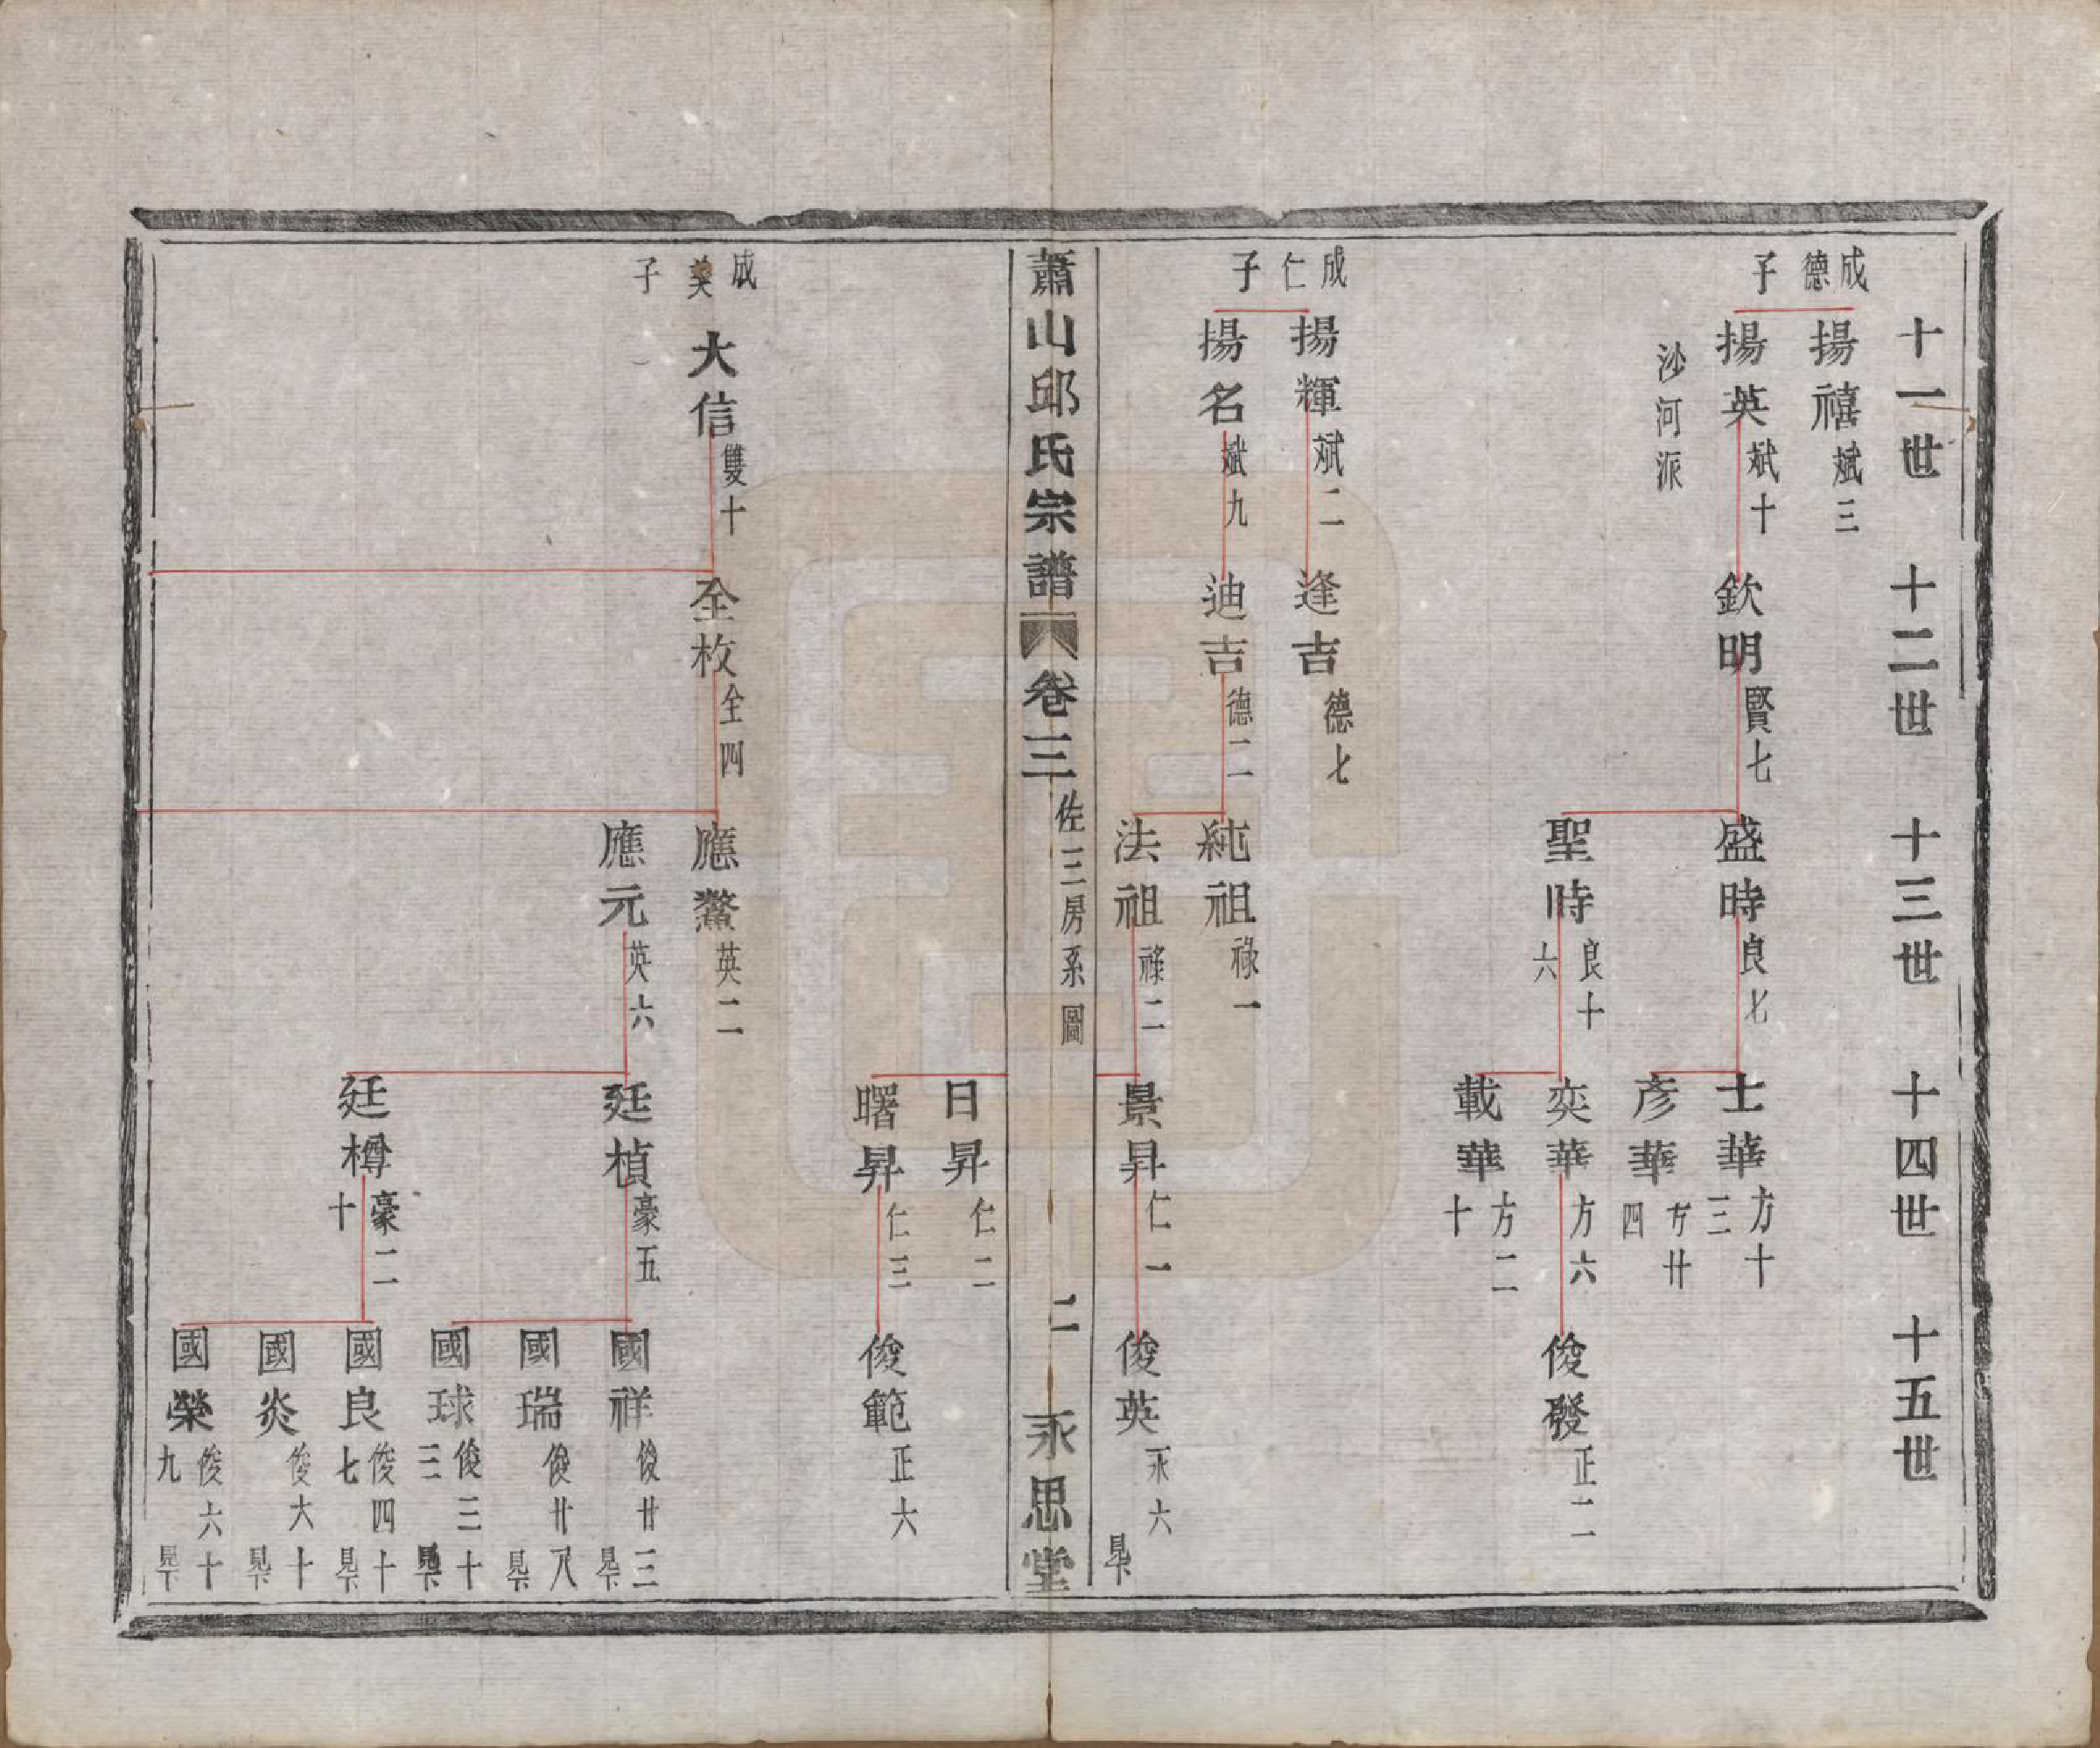 十一世
十二世
十三世
十四世
十五世
成德子
揚禧 斌三
揚英 斌十
沙河派
欽明 賢七
盛時 良七
聖時 良十六
士華 方十三
彥華 方廿四
奕華 方六
載華 方二十
俊發 正二
成仁子
揚輝 斌二
揚名 斌九
逢吉 德七
迪吉 德二
純祖 祿一
法祖 祿二
景昇 仁一
俊英 永六
蕭山邱氏宗譜 卷三 佐三房系圖 二 永思堂
日昇 仁二
曙昇 仁三
俊範 正六
成美子
大信 雙十
全枚 全四
應鰲 英二
應元 英六
廷楨 豪五
廷樽 豪二十
國祥 俊廿三
國瑞 俊廿八
國球 俊三十三
國良 俊四十七
國炎 俊六十
國榮 俊六十九